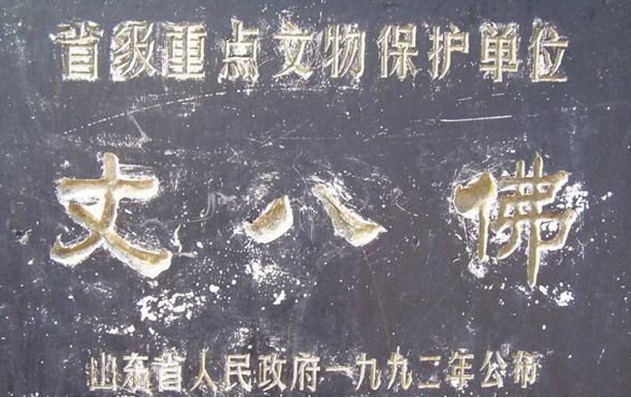 省级重点文物保护单位
丈八佛
山东省人民政府一九九二年公布